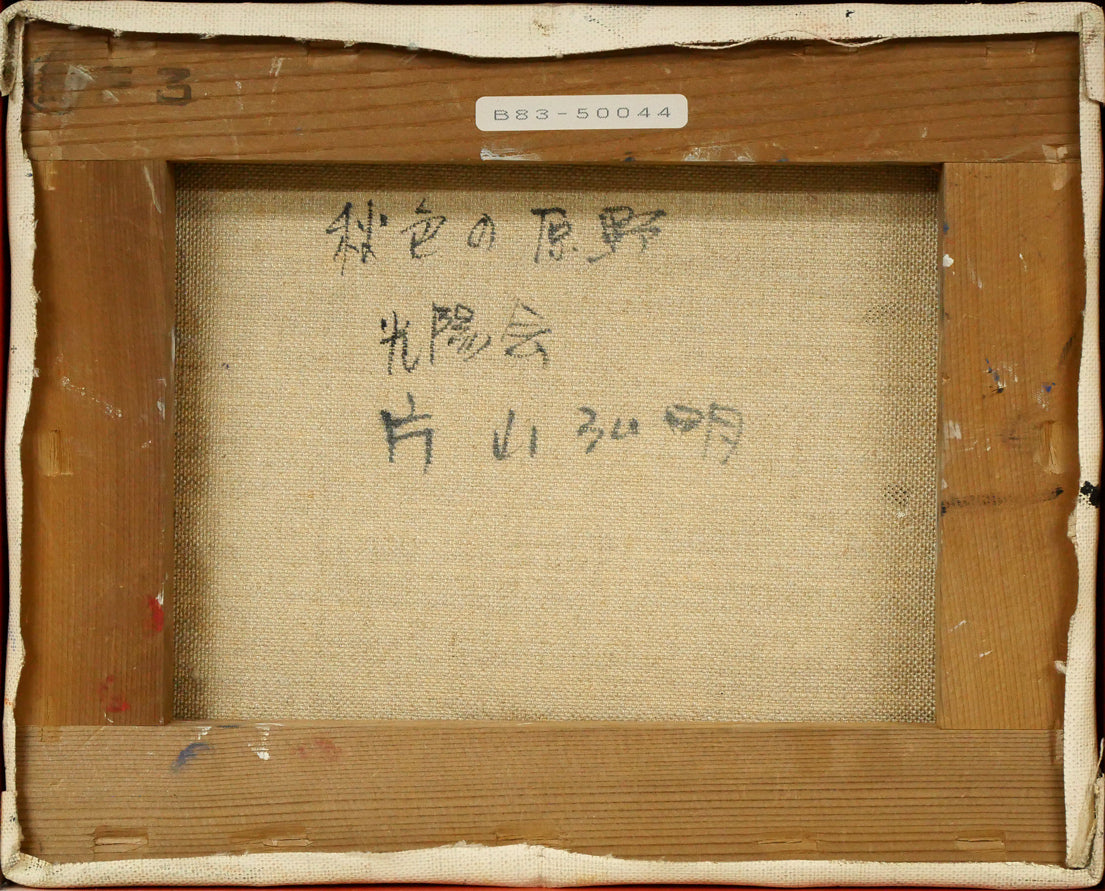 -3
B83-50044
秋色の原野
光陽会
片山弘明